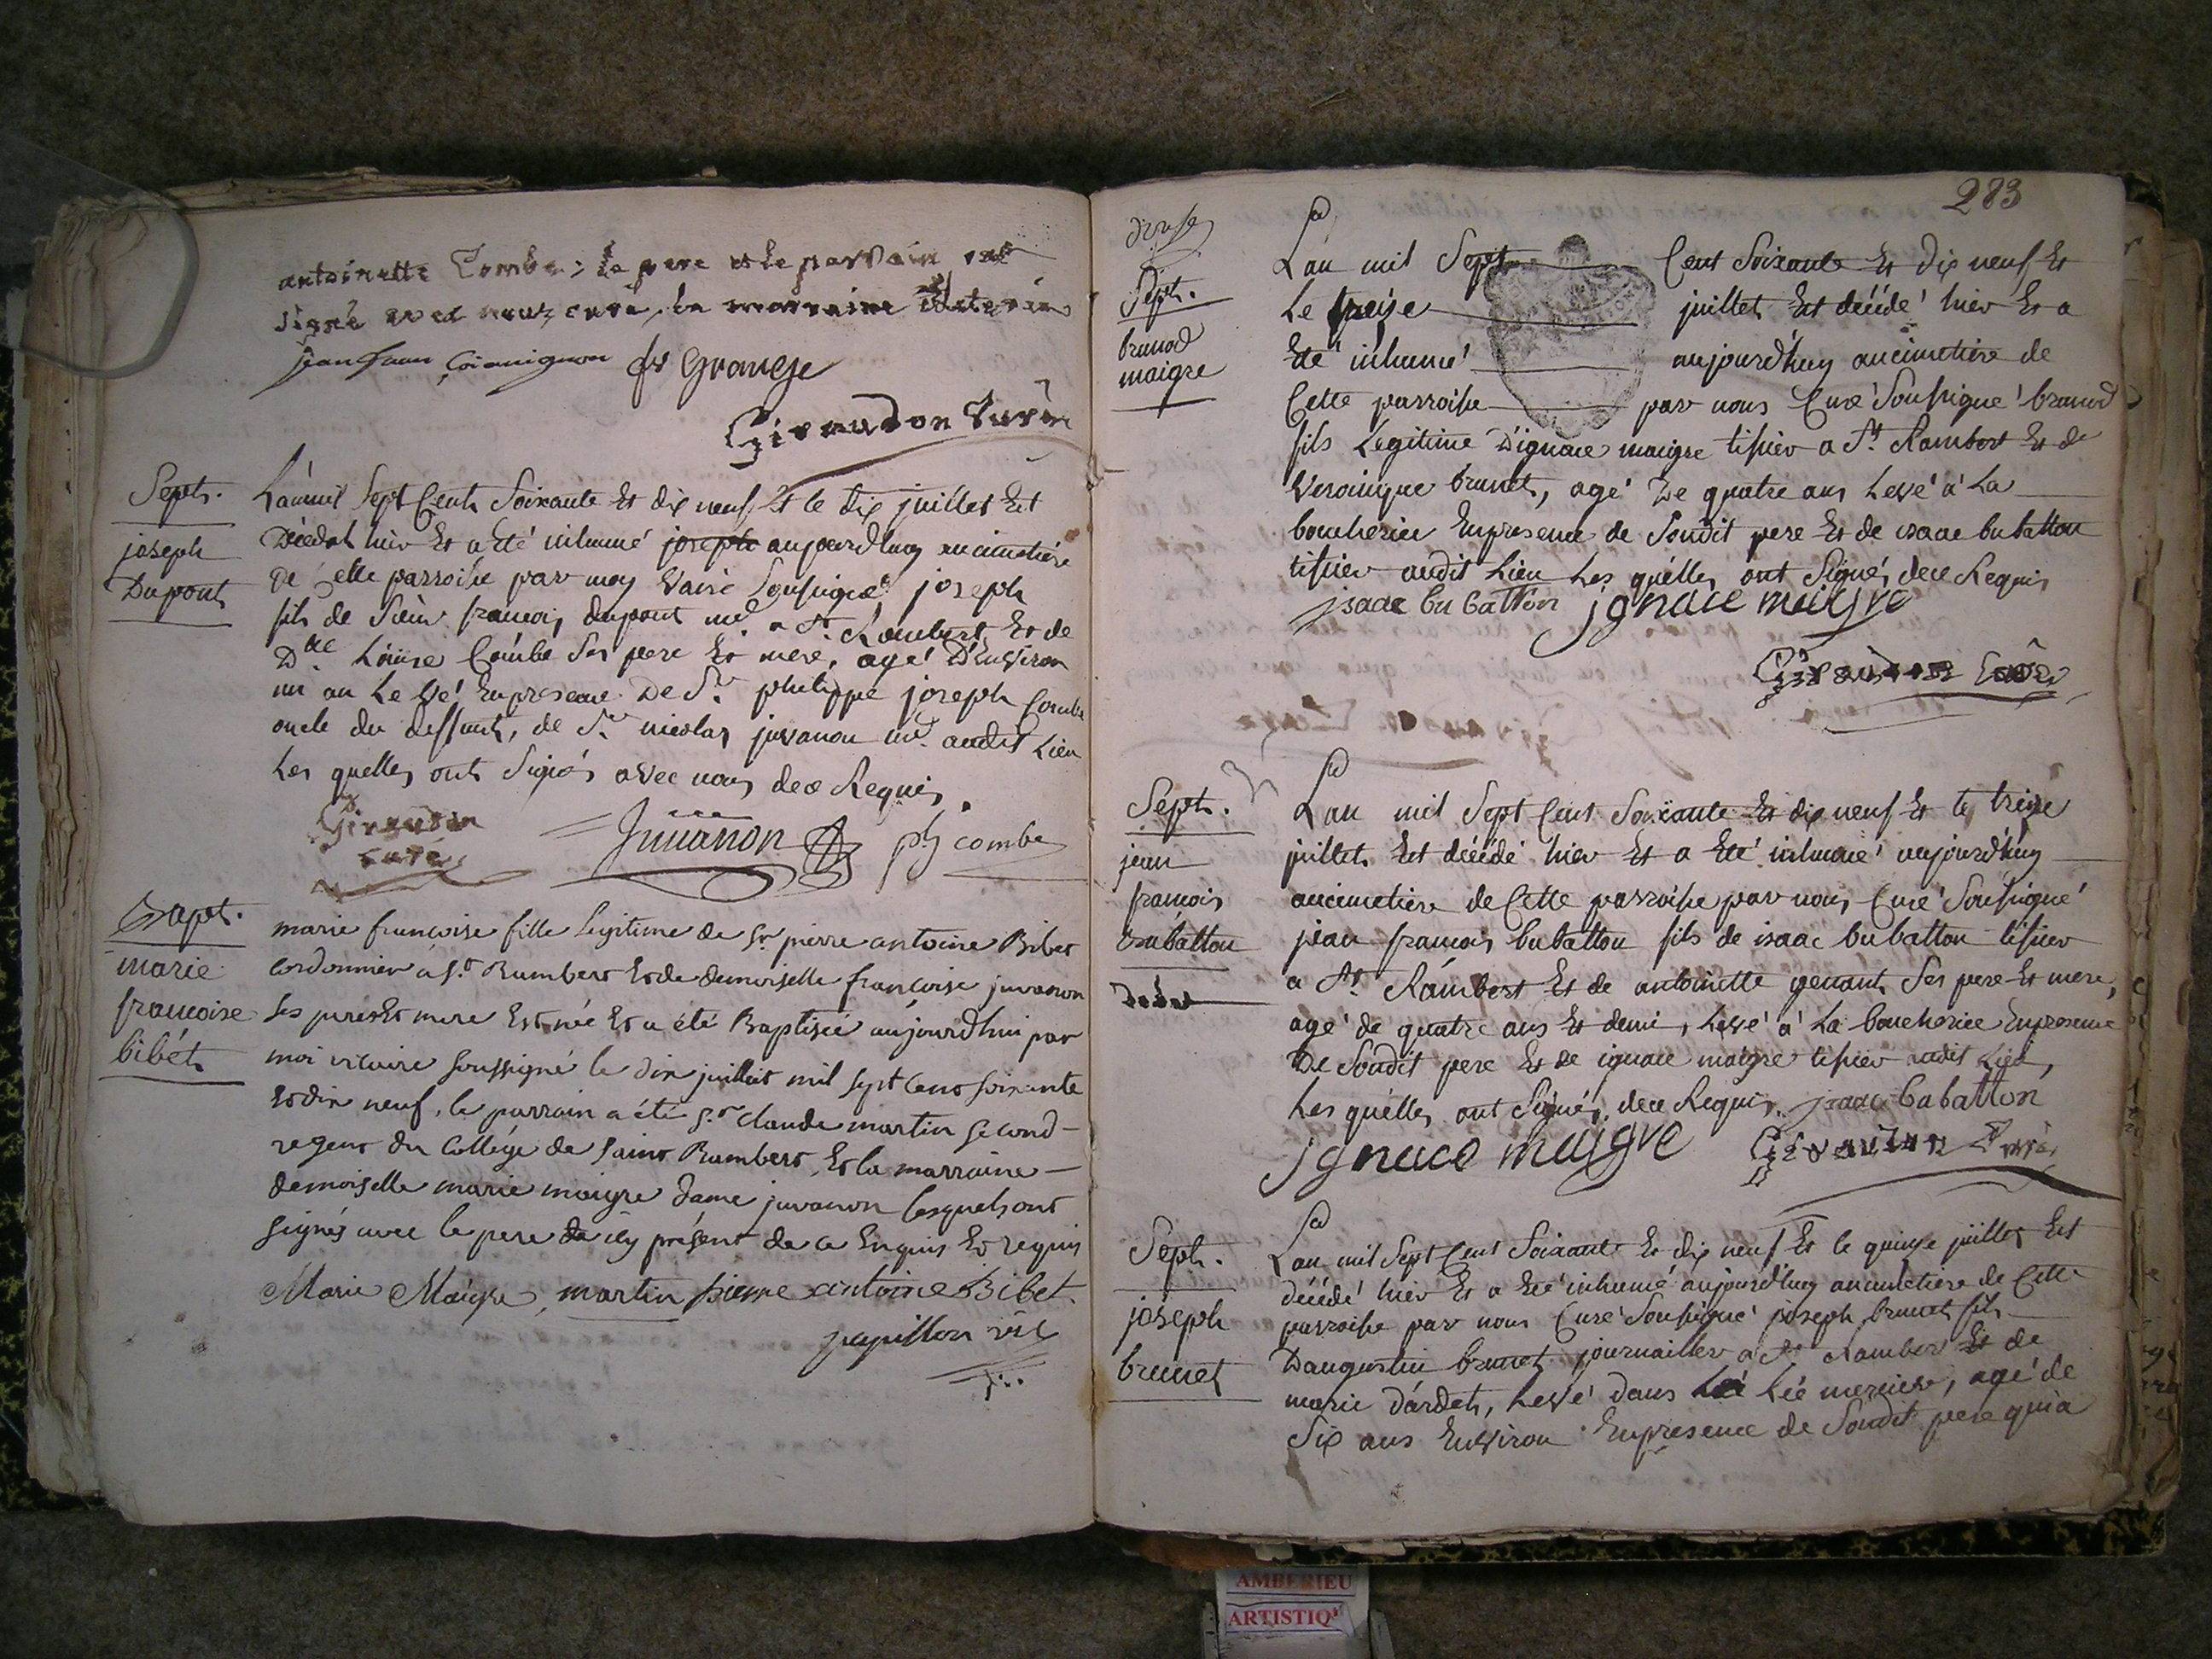 antoinette Combe; le pere et le parrain ont
signé avec nous curé, la marraine
jean
Grange
Giraudon Curé
Septr.
joseph
Dupont
L'an mil Sept Cents Soixante Et dix neuf Et le dix juillet Est
Décédat hier Et a été inhumé joseph aujourd'huy au cimetière
de Cette parroisse par moy Soussigné joseph
fils de Sieur françois dupont md. a St. Rambert, Et de
Dlle Louise Combe Ses pere Et mere, agé D'Environ
un an Levé Enpresence De Sr. philippe joseph Combe
oncle du deffunt, de Sr. nicolas juvanon md. audit Lieu
Les quelles ont Signés avec nous dece Requis.
Giraudon
curé
Juvanon
ph combe
Bapt.
marie
francoise
bibét
marie francoise fille legitime de Sr. pierre antoine Bibet
Cordonnier à St. Rambert Et de demoiselle françoise juvanon
ses peres Et mere Est née Et a été Baptisée aujourdhui par
moi vicaire soussigné le dix juillet mil sept cens soixante
Et dix neuf, le parrain a été Sr. claude martin second
regent du Collége de saint Rambert, Et la marraine
demoiselle marie maigre dame juvanon lesquels ont
signés avec le pere de icy présent de ce Enquis Et requis
Marie Maigre, martin pierre antoine Bibet.
papillon vic
283
Sept.
brunod
maigre
L'an mil Sept Cent Soixante Et Dix neuf Et
Le treize juillet Est décédé hier Et a
Eté inhumé aujourdhuy aucimetiere de
Cette parroisse par nous Curé Soussigné brunod
fils Legitime D'ignace maigre tissier a St. Rambert Et de
Veronique brunet, agé De quatre ans Levé à La
boucherie Enpresence de Sondit pere Et de isaac bubatton
tissier audit Lieu Les quélles ont Signés dece Requis
jsaac bubatton jgnace maigre
Giraudon Curé
Septr.
jean
francois
bubatton
L'an mil Sept Cent Soixante Et dix neuf Et le treize
juillet Est décédé hier Et a Eté inhumé aujourdhuy
aucimetiere de Cette parroisse par nous Curé Soussigné
jean francois bubatton fils de isaac bubatton tissier
a St. Rambert Et de antoinette genant Ses pere Et mere,
agé de quatre ans Et demi, Levé à La boucherie Enpresence
De Sondit pere Et de ignace maigre tissier audit Lieu,
Les quélles ont Signés dece Requis. jsaac bubatton
jgnace maigre Giraudon Curé
Septr.
joseph
brunet
L'an mil Sept Cent Soixante Et dix neuf Et le quinze juillet Est
décédé hier Et a Eté inhumé aujourd'huy aucimetiere de Cette
parroisse par nous Curé Soussigné joseph brunet fils
D'augustin brunet journaillier a St. Rambert Et de
marie dardet, Levé dans merciere, agé de
Six ans Environ Enpresence de Sondit pere qui a
AMBERIEU
ARTISTIQ'